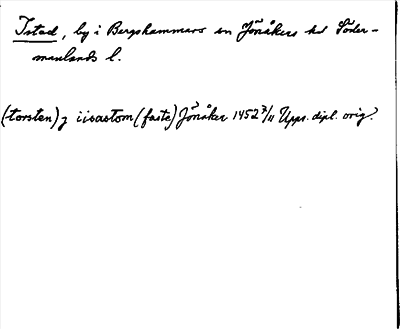 Istad, by i Bergshammars sn Jönåkers hd Söder-
manlands l.
(torsten) j iisastom (faste) Jönåker 1452 3/11 Upps. dipl. orig.